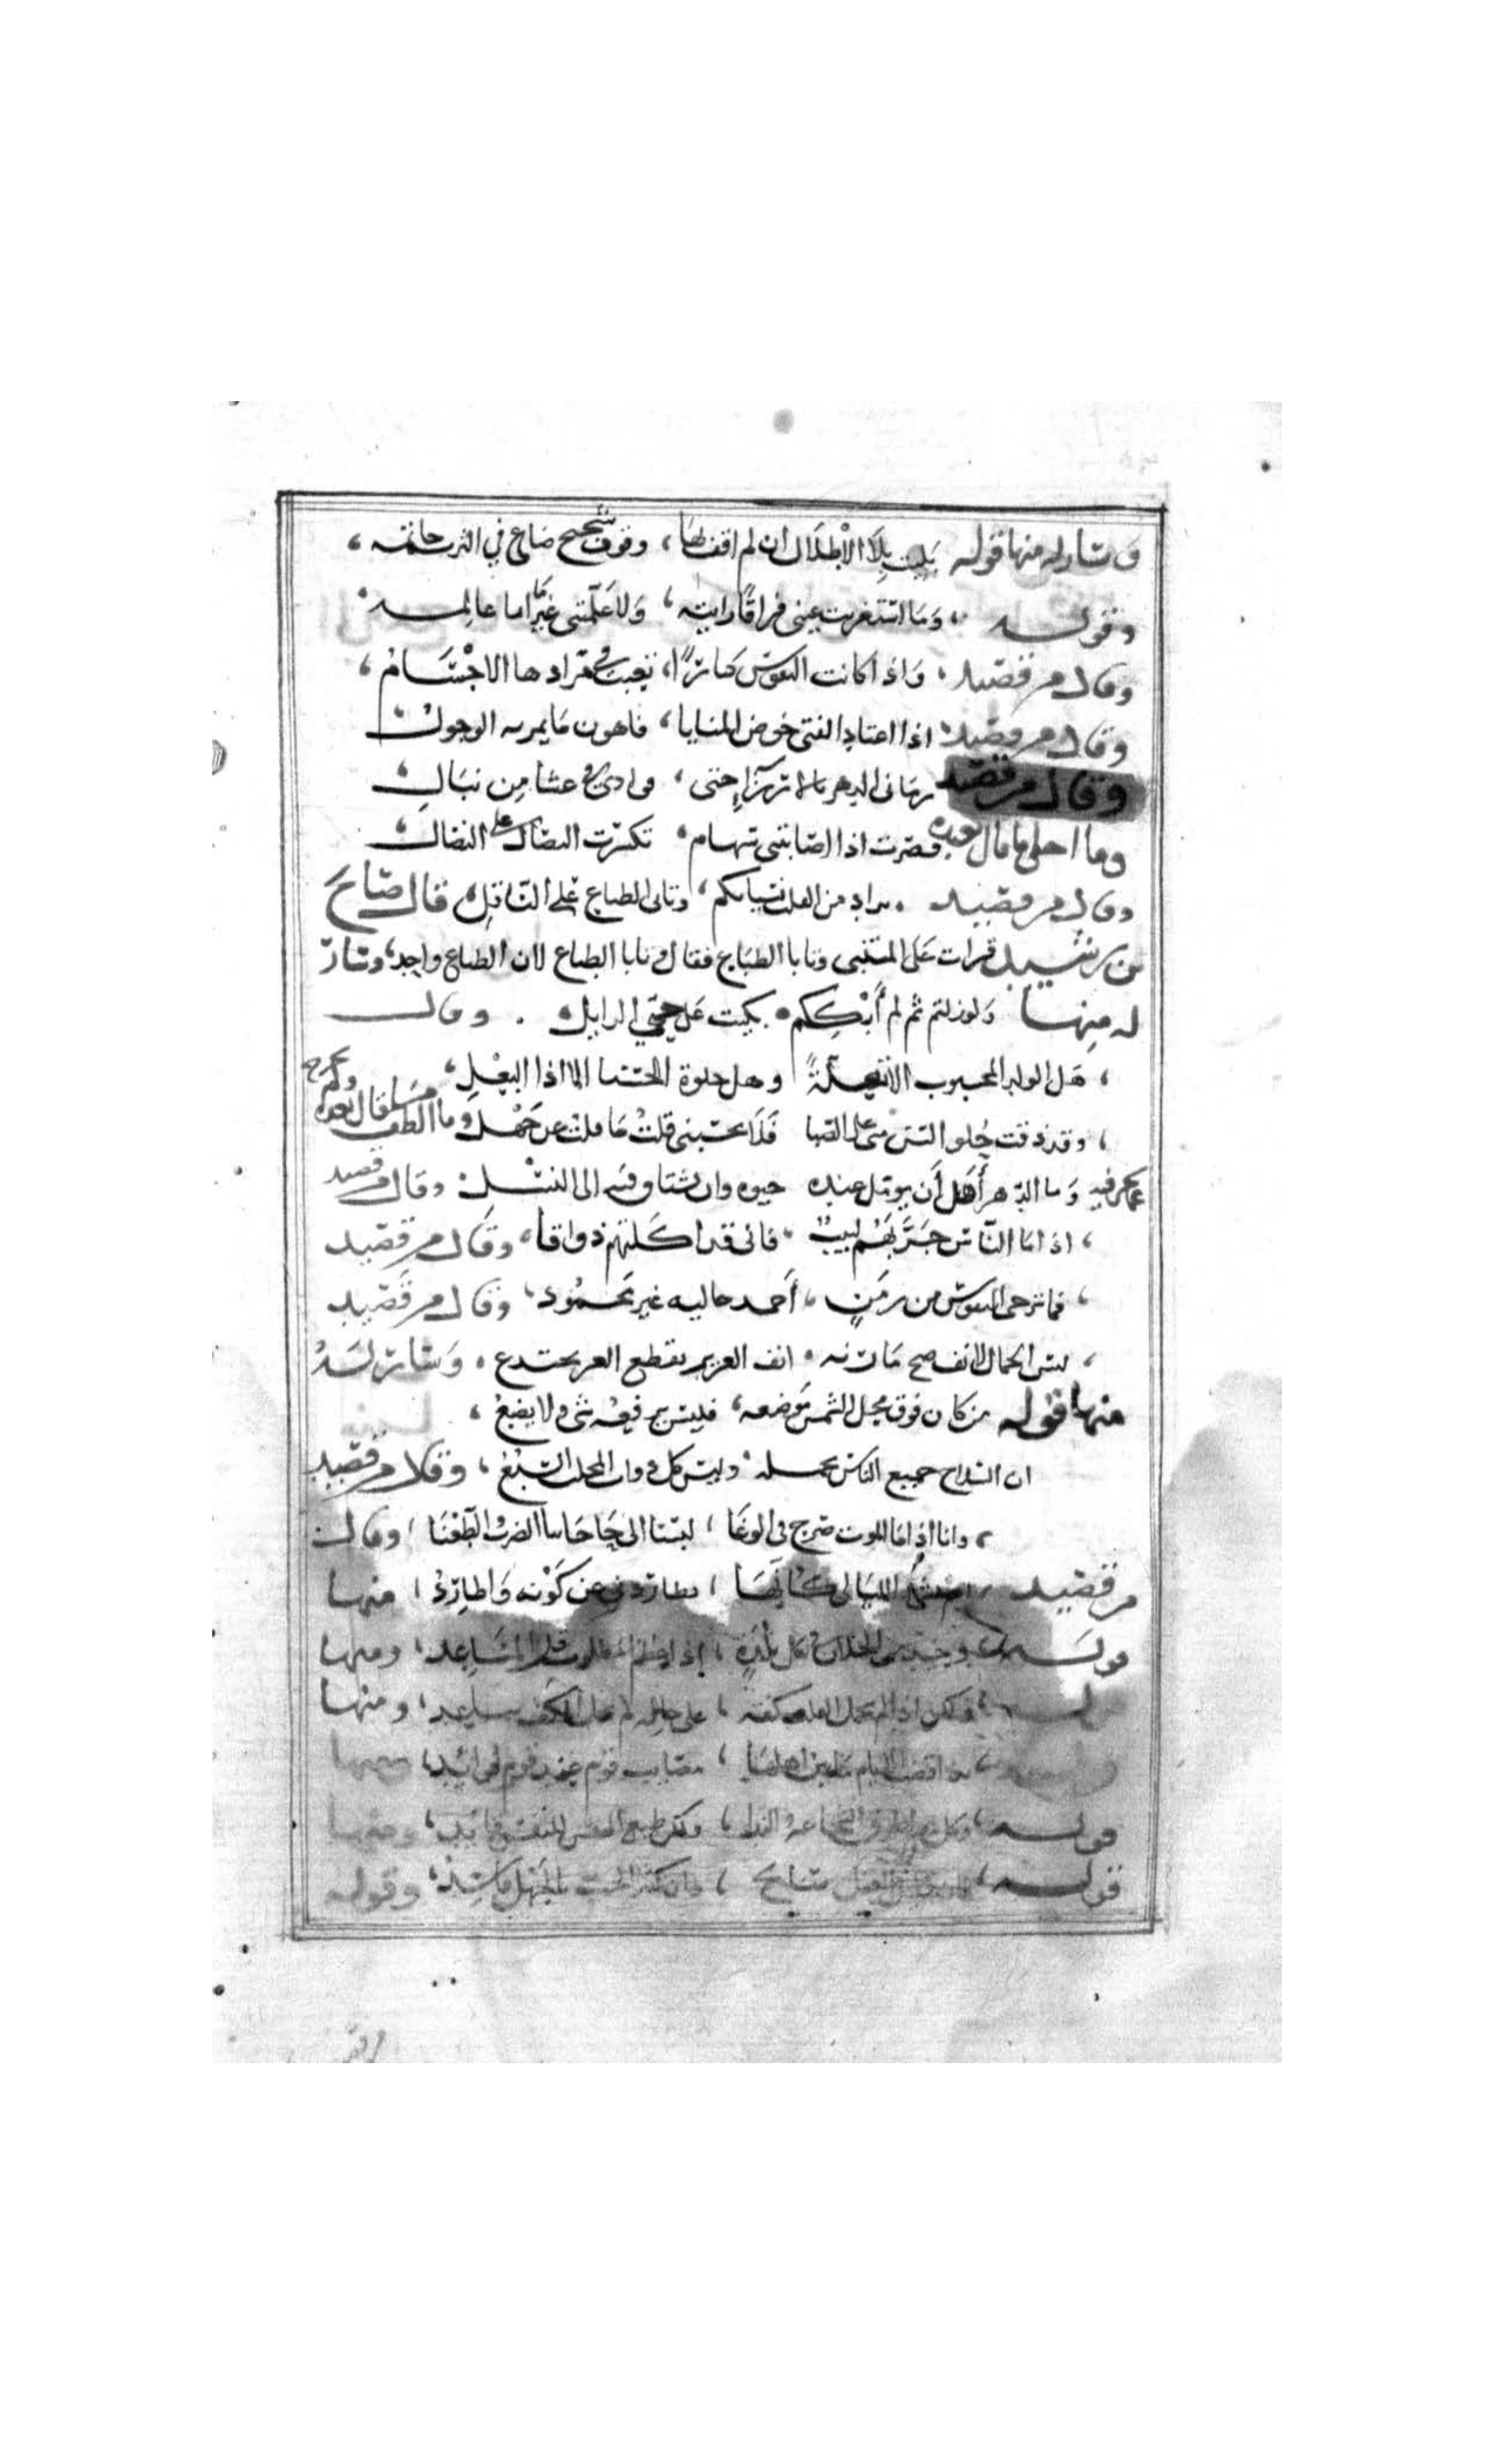 وسار له منها قوله بليت بلا الاطلال ان لم اقف لها، وقوف شحيح ضاع في الترب خاتمه،
وقوله وما استغربت عيني فراقا رايته، ولا علمتني غير ما اما عالمه
وقال من قصيد، واذا كانت النفوس كبارًا، تعبت في مرادها الاجسام،
وقال من قصيد اذا اعتاد الفتى خوض المنايا، فاهون ما يمر به الوحول
وقال من قصيد رماني الدهر بالارزاء حتى، فوادي في غشا من نبال
وما احلى ما قال بعده فصرت اذا اصابتني سهام، تكسرت النصال على النصال
وقال من قصيد يراد من القلب نسيانكم، وتابى الطباع على الناقل، قال صالح
بن رشيد قرات على المتنبي وتابا الطباع فقال يابا الطباع لان الطباع واحد، وسار
له منها ولو زلتم ثم لم أبككم، بكيت على حبي الزايل. وقال
، هل الولد المحبوب الا تعلةً وهل خلوة الحسنا الا اذا البعل،
، وقد ذقت حلو البنين على الصبا فلا تحسبني قلت ما قلت عن جهل وما الطف ما قال بعده
وما الدهر أهل أن يومل عنده حيوه وان يشتاق فيه الى النسل وقال من قصيد
، اذا ما الناس جرّبهم لبيب، فاني قد اكلتهم وذاقا، وقال من قصيد
، فما ترجى النفوس من زمن، أحمد حاليه غير محمود، وقال من قصيد
، ليس الجمال لانف صح مارنه، انف العزيز بقطع العز يجتدع، وسار له
منها قوله من كان فوق محل الشمس موضعه، فليس يرفعه شي ولا يضع،
ان السلاح جميع الناس تحمله وليس كل ذوات المخلب السبع، وقال من قصيد
، وانا اذا ما الموت صرح في الوغا، لبسنا الى حاجاتنا الضرب الطعنا، وقال
من قصيد، اهم بشي والليالي كانها، تطاردني عن كونه واطارد، منها
قوله، وحيد من الخلان في كل بلدة، اذا عظم المطلوب قل المساعد، ومنها
قوله، ولكن اذا لم يحمل القلب كفه، على حالة لم يحمل الكف ساعد، ومنها
قوله، بذا قضت الايام ما بين اهلها، مصايب قوم عند قوم فوايد، ومنها
قوله، وكل يرى طرق الشجاعة والندا، ولكن طبع النفس للنفس قايد، ومنها
قوله، صالح، وان كثير الحب بالجهل فاسد، وقوله